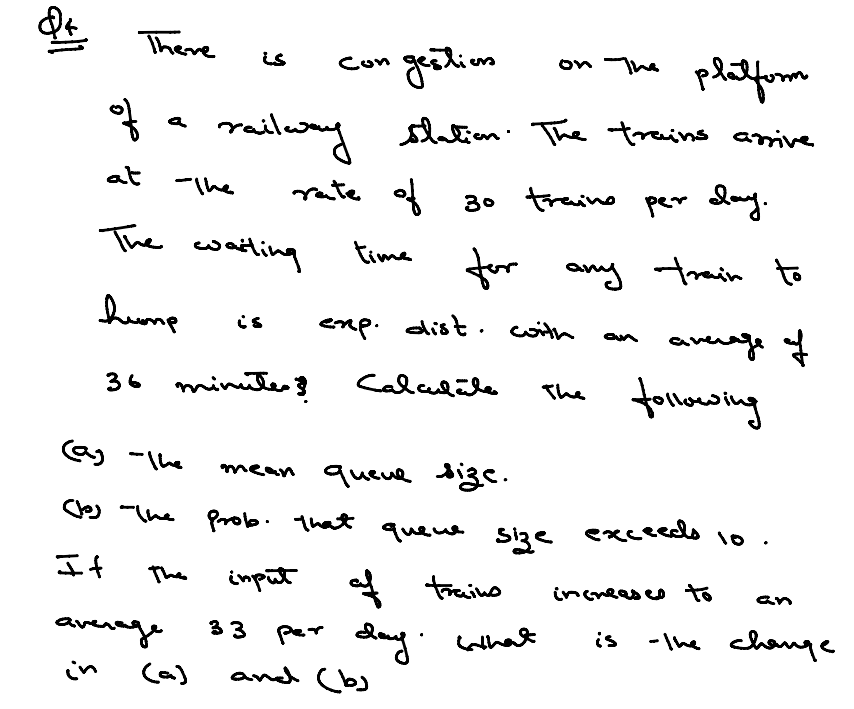 Q4 There is congestion on the platform
of a railway station. The trains arrive
at the rate of 30 trains per day.
The waiting time for any train to
hump is exp. dist. with an average of
36 minutes. Calculate the following
(a) the mean queue size.
(b) the prob. that queue size exceeds 10.
If the input of trains increases to an
average 33 per day. What is the change
in (a) and (b)